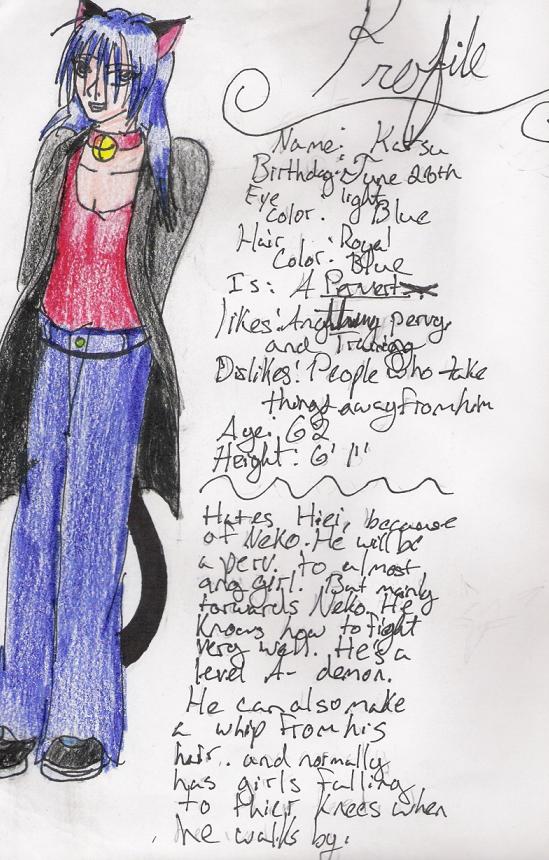 Profile
Name: Katsu
Birthday: June 26th
Eye light
color: Blue
Hair : Royal
Color: Blue
Is: A Pervert
likes: Anything pervy
and Training
Dislikes: People who take
things away from him
Age: 62
Height: 6' 1"
Hates Hiei, because
of Neko. He will be
a perv. to almost
any girl. But mainly
torwards Neko. He
knows how to fight
very well. He's a
level A- demon.
He can also make
a whip from his
hair.. and normally
has girls falling
to thier knees when
he walks by.